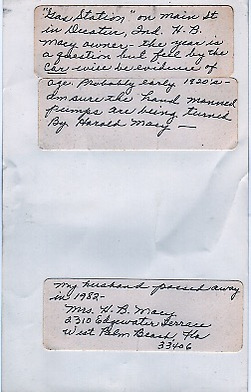 "Gas Station" on Main St
in Deester, Ind. H. B.
Macy owner - the year is
a question but feel by the
car will be evidence of
age. Probably early 1920's -
am sure the hand manned
pumps are being turned
By Harold Macy —
My husband passed away
in 1982 -
Mrs. H. B. Macy
2310 Edgewater Terrace
West Palm Beach, Fla
33406